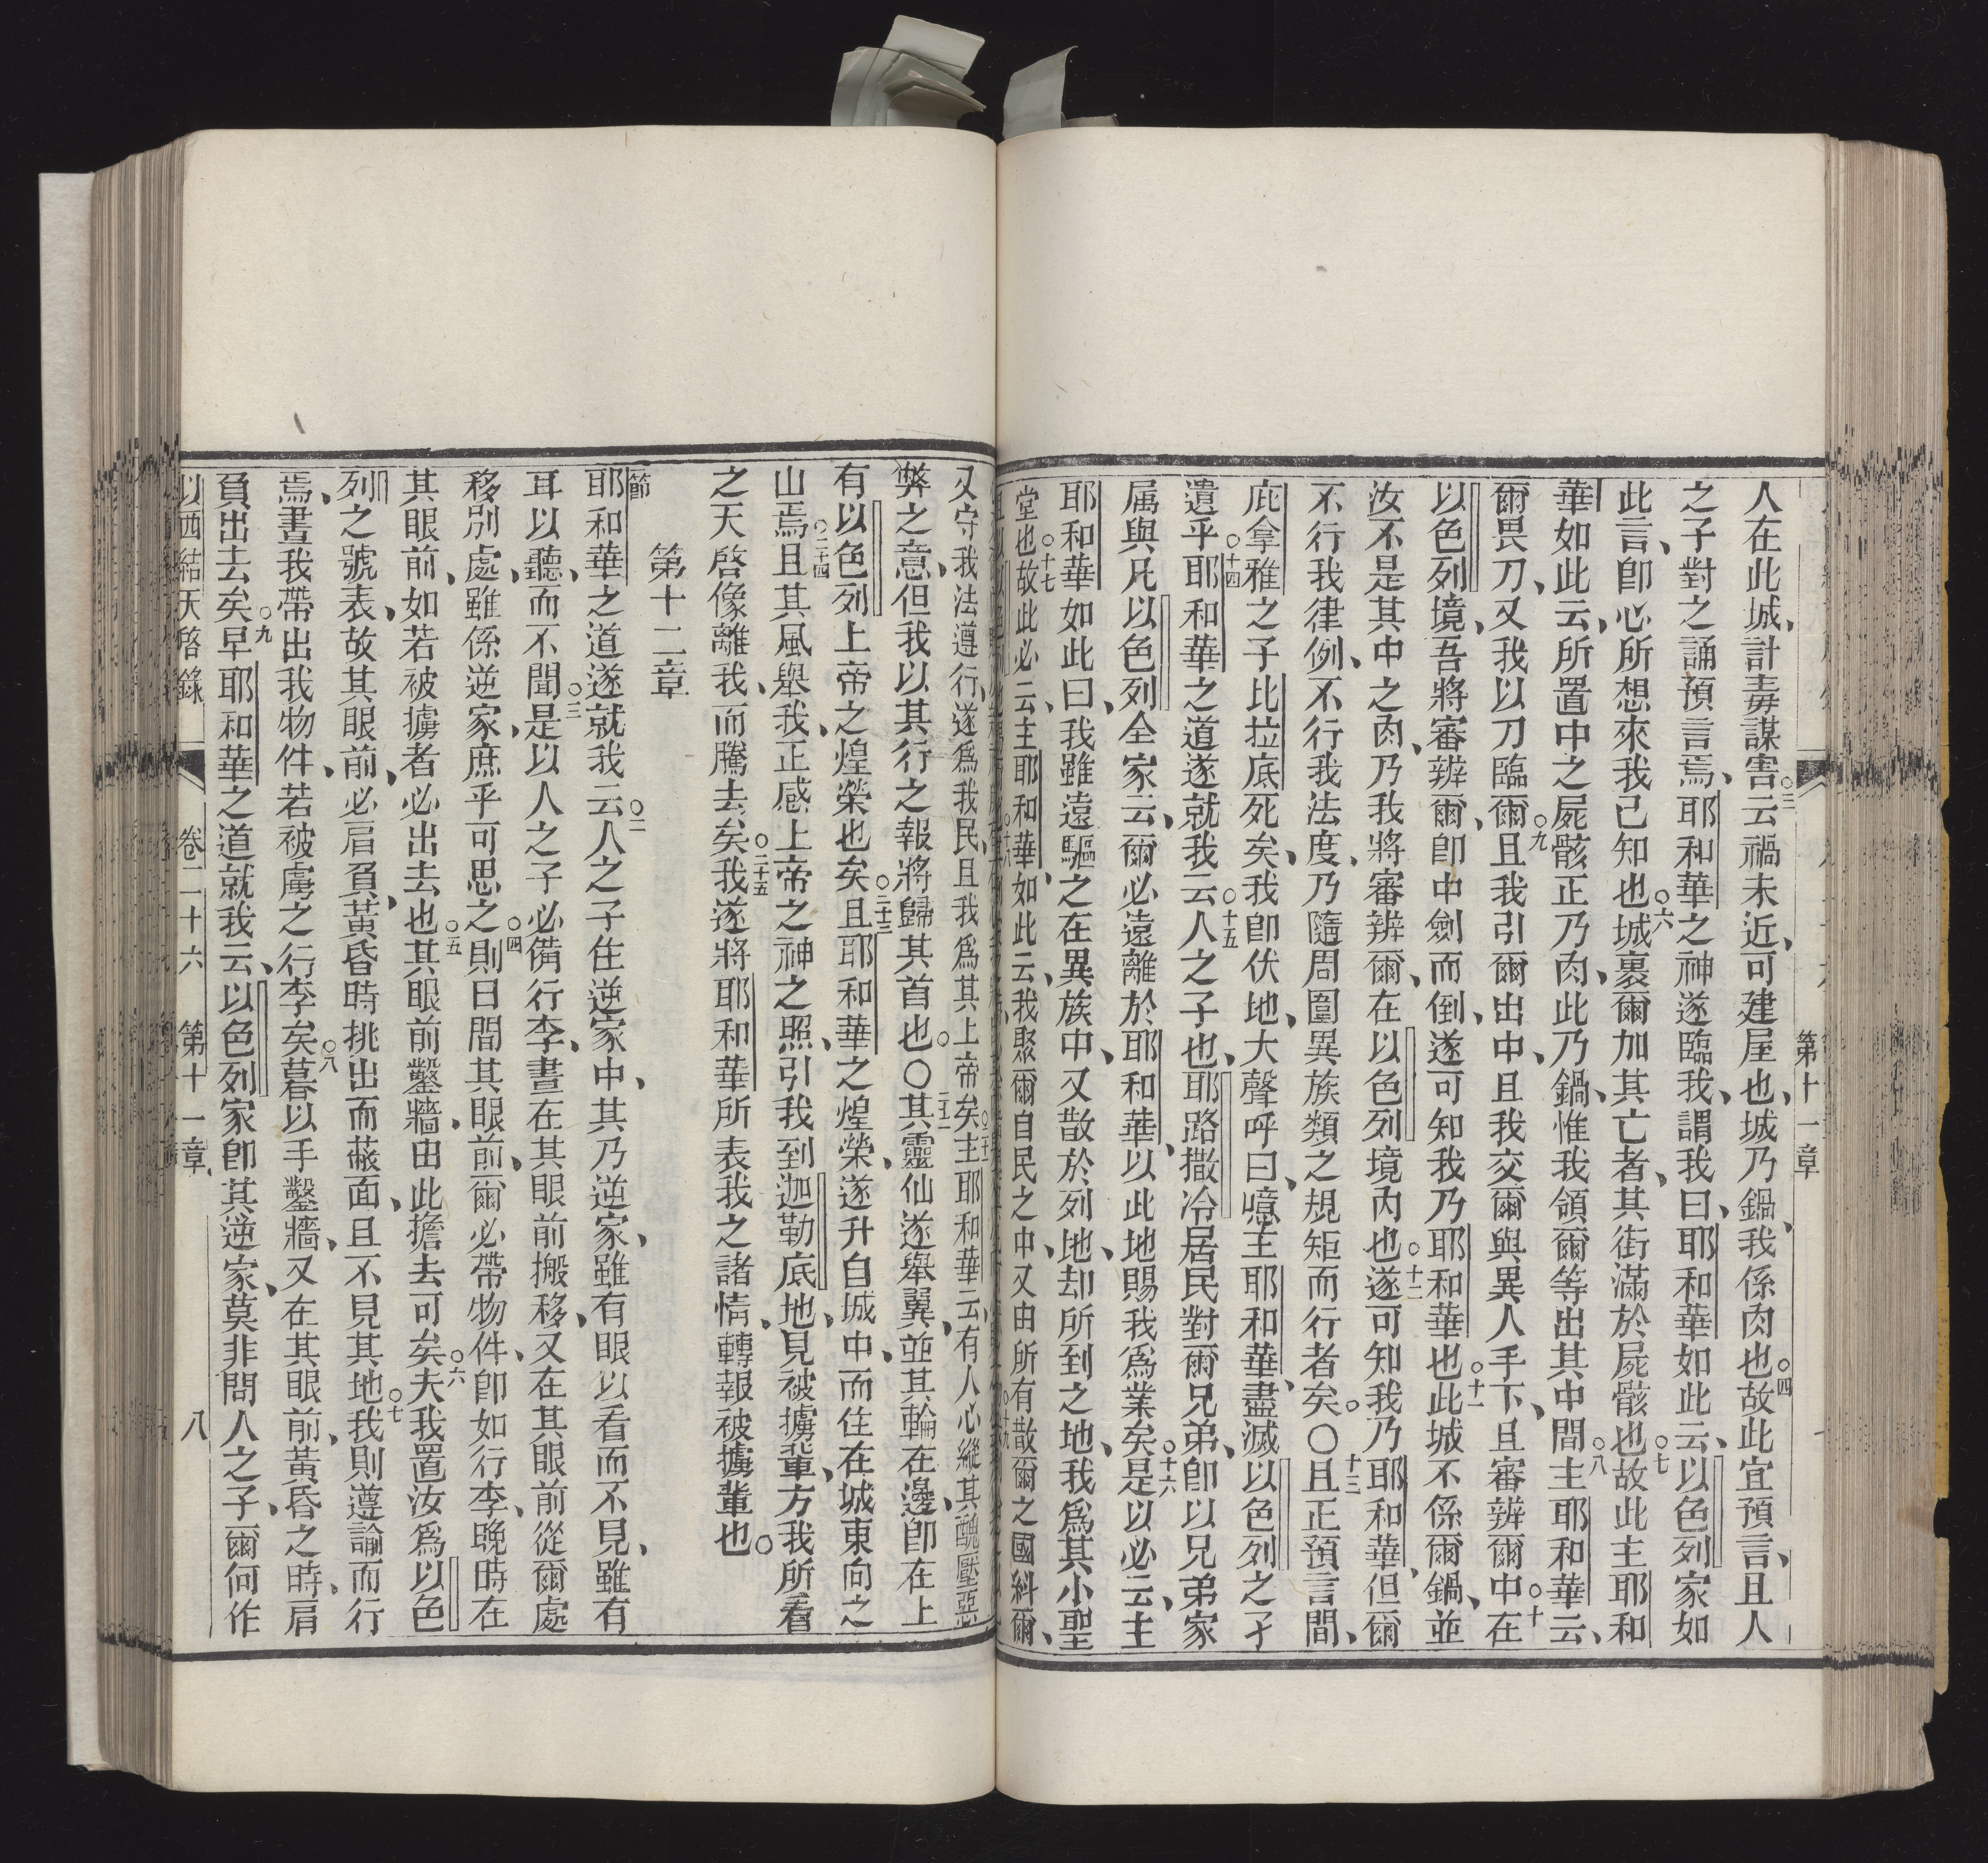 第十一章
人在此城、計毒謀害、○三云禍未近、可建屋也、城乃鍋、我係肉也、○四故此宜預言、且人
之子對之誦預言焉、耶和華之神遂臨我、謂我曰、耶和華如此云、以色列家如
此言、卽心所想來我已知也、○六城裏爾加其亡者、其街滿於屍骸也、○七故此主耶和
華如此云、所置中之屍骸正乃肉、此乃鍋、惟我領爾等出其中間、○八主耶和華云、
爾畏刀、又我以刀臨爾、○九且我引爾出中、且我交爾與異人手下、且審辨爾中、○十在
以色列境、吾將審辨爾、卽中劍而倒、遂可知我乃耶和華也、○十一此城不係爾鍋、並
汝不是其中之肉、乃我將審辨爾、在以色列境內也、○十二遂可知我乃耶和華、但爾
不行我律例、不行我法度、乃隨周圍異族類之規矩而行者矣。○十三且正預言間、
庇拿雅之子比拉底死矣、我卽伏地、大聲呼曰、噫主耶和華、盡滅以色列之孑
遺乎、○十四耶和華之道遂就我云、○十五人之子也、耶路撒冷居民對爾兄弟、卽以兄弟家
属與凡以色列全家云、爾必遠離於耶和華、以此地賜我爲業矣、○十六是以必云、主
耶和華如此曰、我雖遠驅之在異族中、又散於列地、却所到之地、我爲其小聖
堂也、○十七故此必云、主耶和華如此云、我聚爾自民之中、又由所有散爾之國糾爾、
又守我法遵行、遂爲我民、且我爲其上帝矣、主耶和華云、有人心縱其醜壓惡
弊之意、但我以其行之報將歸其首也。○二十二其靈仙遂舉翼、並其輪在邊、卽在上
有以色列上帝之煌榮也矣、○二十三且耶和華之煌榮、遂升自城中、而住在城東向之
山焉、○二十四且其風舉我、正感上帝之神之照、引我到迦勒底地、見被擄輩、方我所看
之天啓像離我、而騰去矣、○二十五我遂將耶和華所表我之諸情、轉報被擄輩也。
第十二章
節
耶和華之道遂就我云、○二人之子住逆家中、其乃逆家、雖有眼以看而不見、雖有
耳以聽、而不聞、○三是以人之子必備行李、晝在其眼前搬移、又在其眼前從爾處
移別處、雖係逆家、庶乎可思之、○四則日間其眼前、爾必帶物件、卽如行李、晚時在
其眼前、如若被擄者必出去也、○五其眼前鑿牆、由此擔去可矣、○六夫我置汝爲以色
列之號表、故其眼前、必肩負、黃昏時挑出而蔽面、且不見其地、○七我則遵諭而行
焉、晝我帶出我物件、若被虜之行李矣、暮以手鑿牆、又在其眼前、黃昏之時、肩
負出去矣、○八早耶和華之道就我云、○九以色列家卽其逆家、莫非問人之子、爾何作
以西結天啓錄 卷二十六 第十一章 八